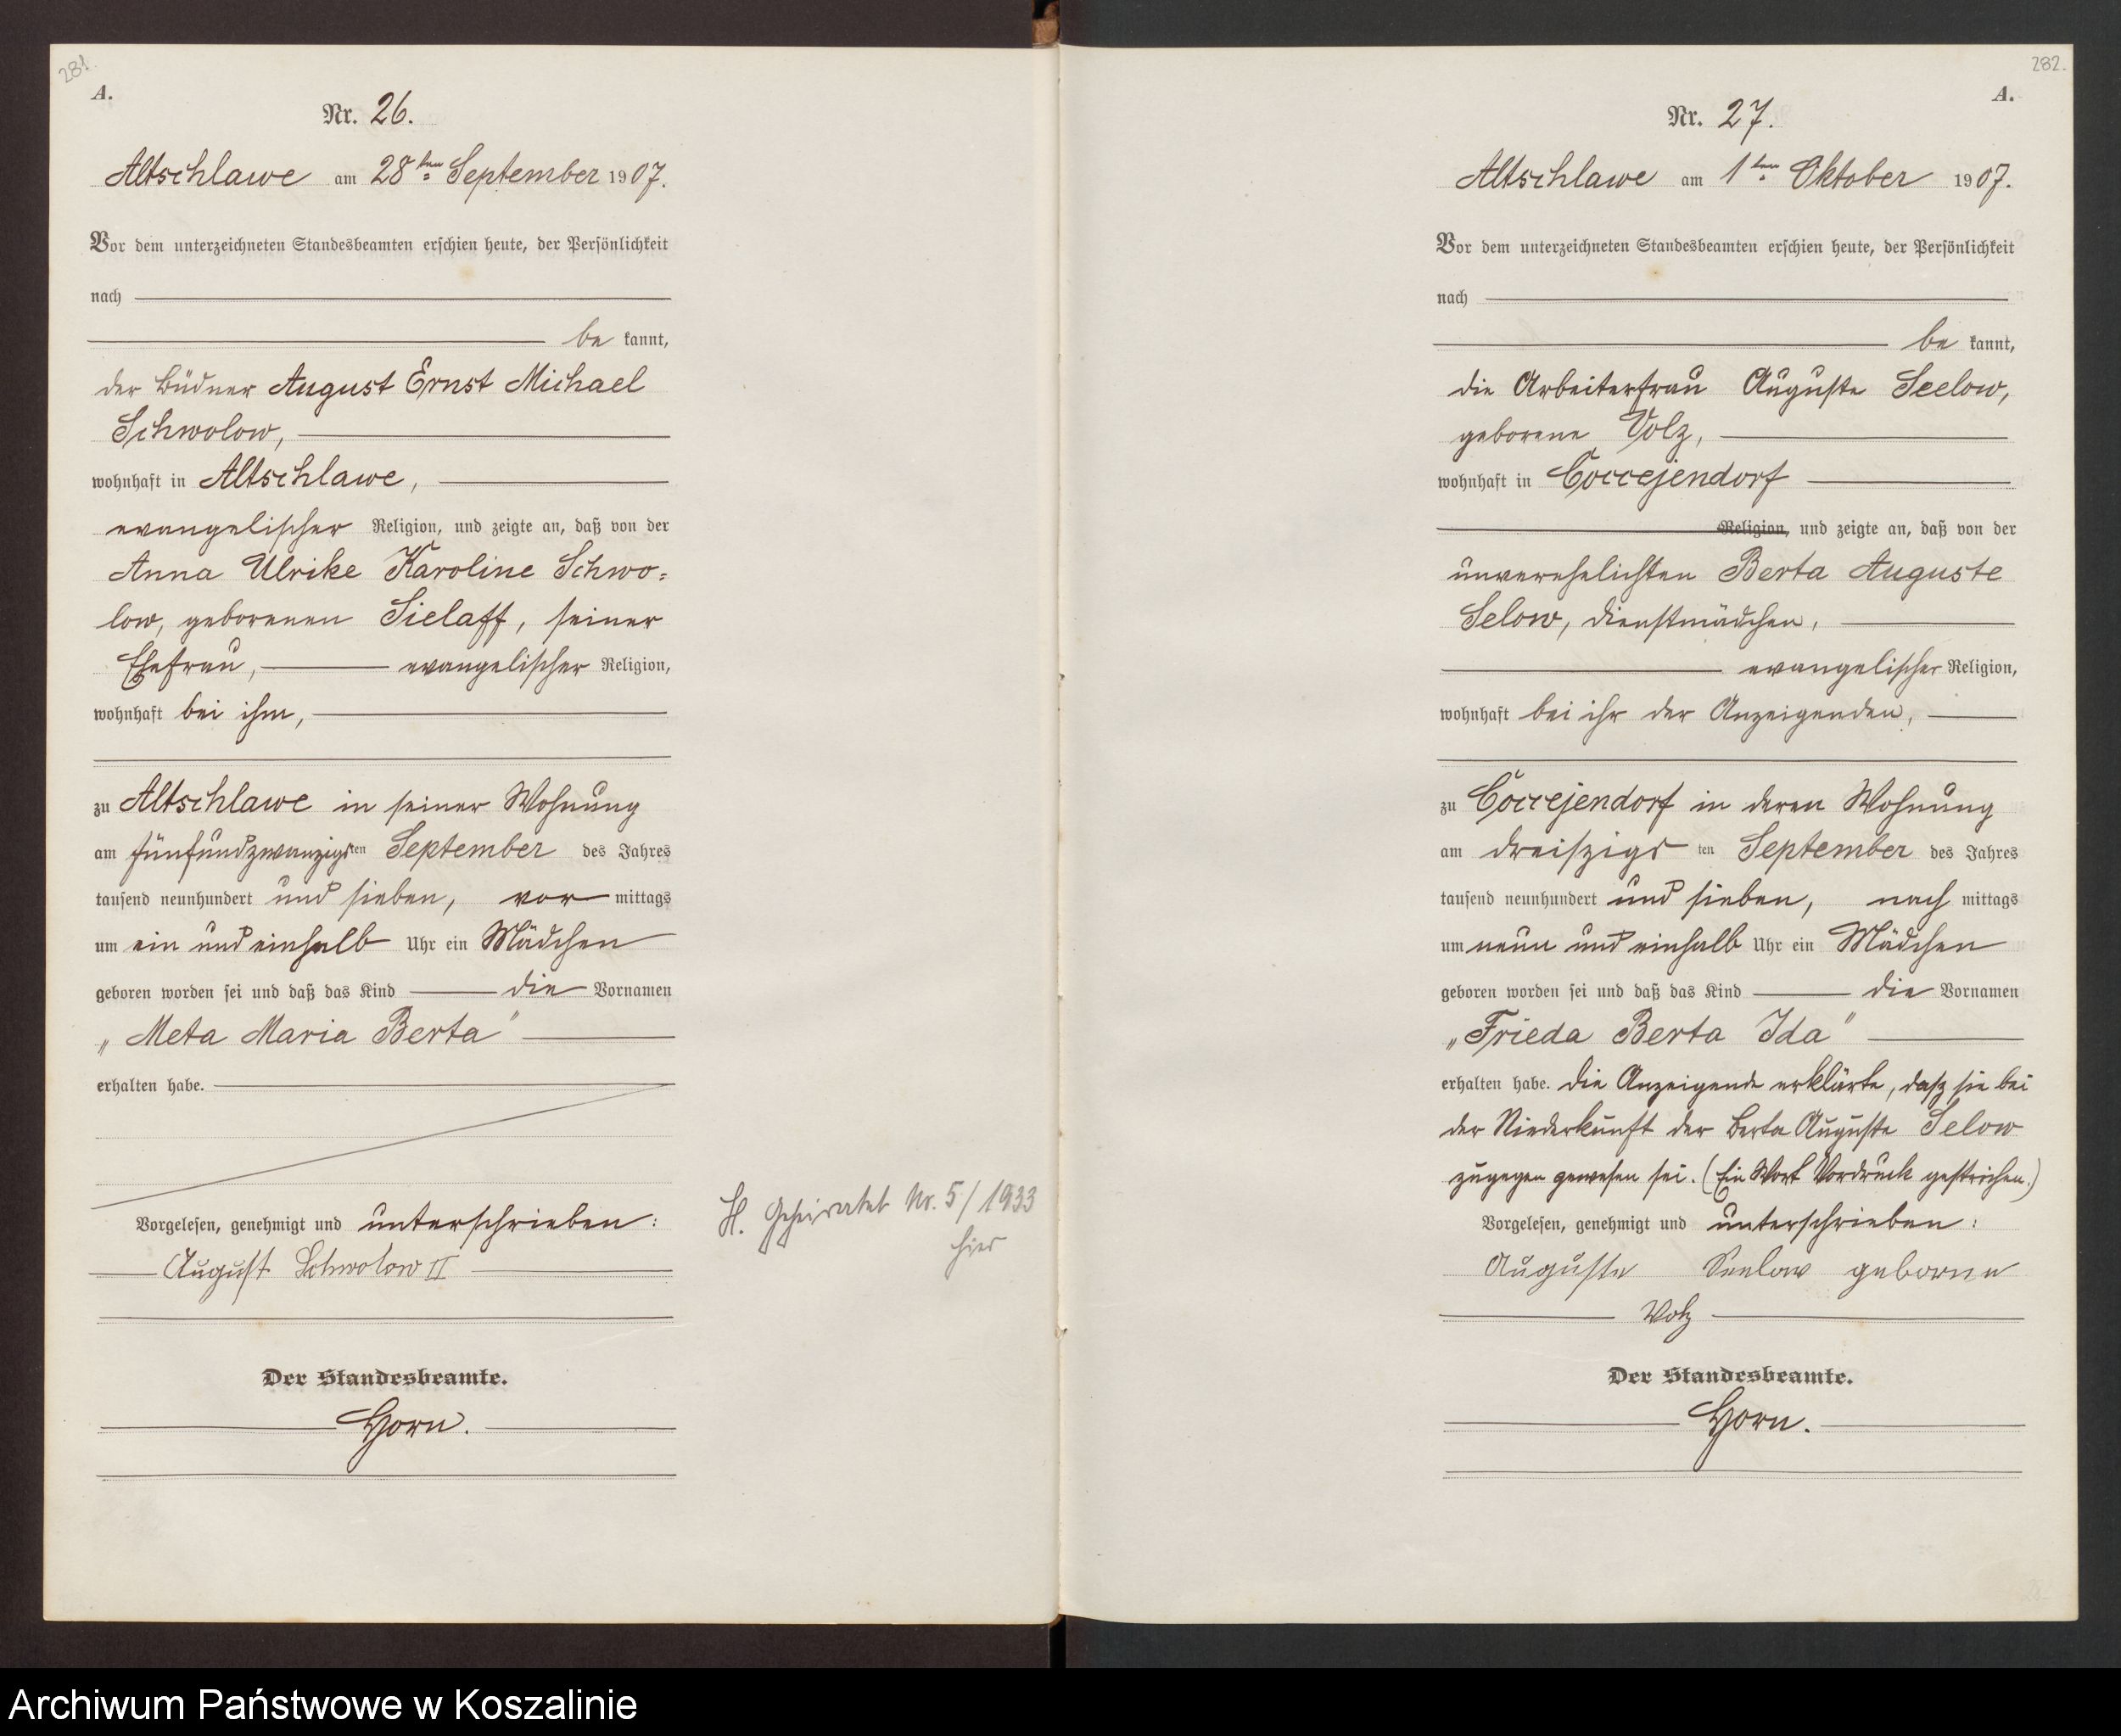 281.
A.
Nr. 26.
Altschlawe am 28ten September 1907.
Vor dem unterzeichneten Standesbeamten erschien heute, der Persönlichkeit
nach
be kannt,
der Büdner August Ernst Michael
Schwolow,
wohnhaft in Altschlawe,
evangelischer Religion, und zeigte an, daß von der
Anna Ulrike Karoline Schwo=
low, geborenen Sielaff, seiner
Ehefrau, evangelischer Religion,
wohnhaft bei ihm,
zu Altschlawe in seiner Wohnung
am fünfundzwanzigsten September des Jahres
tausend neunhundert und sieben, vor mittags
um ein und einhalb Uhr ein Mädchen
geboren worden sei und daß das Kind die Vornamen
„Meta Maria Berta"
erhalten habe.
Vorgelesen, genehmigt und unterschrieben:
August Schwolow II
Der Standesbeamte.
Horn.
H. Geheiratet Nr. 5/1933
hier
282.
A.
Nr. 27.
Altschlawe am 1ten Oktober 1907.
Vor dem unterzeichneten Standesbeamten erschien heute, der Persönlichkeit
nach
be kannt,
die Arbeiterfrau Auguste Seelow,
geborene Volz,
wohnhaft in Coccejendorf
Religion, und zeigte an, daß von der
unverehelichten Berta Auguste
Selow, Dienstmädchen,
evangelischer Religion,
wohnhaft bei ihr der Anzeigenden,
zu Coccejendorf in deren Wohnung
am dreiszigsten September des Jahres
tausend neunhundert und sieben, nach mittags
um neun und einhalb Uhr ein Mädchen
geboren worden sei und daß das Kind die Vornamen
„Frieda Berta Ida"
erhalten habe. Die Anzeigende erklärte, dasz sie bei
der Niederkunft der Berta Auguste Selow
zugegen gewesen sei. (Ein Wort Vordruck gestrichen.)
Vorgelesen, genehmigt und unterschrieben:
Auguste Seelow geborne
Volz
Der Standesbeamte.
Horn.
Archiwum Państwowe w Koszalinie